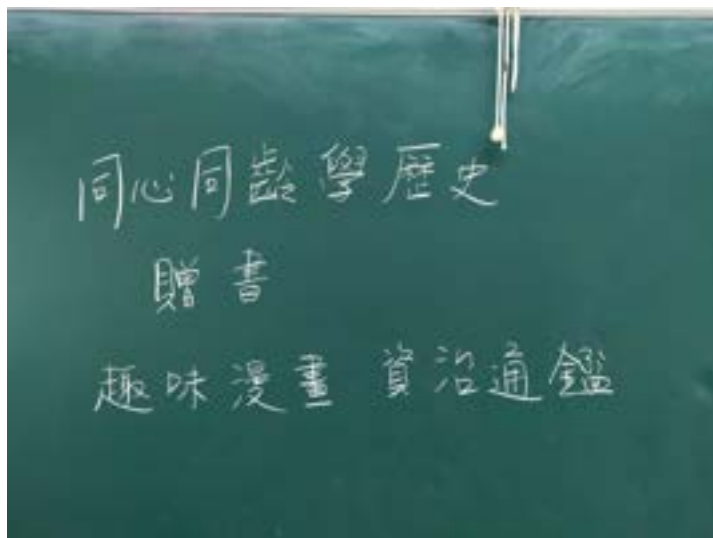 同心同齡學歷史
贈書
趣味漫畫 資治通鑑